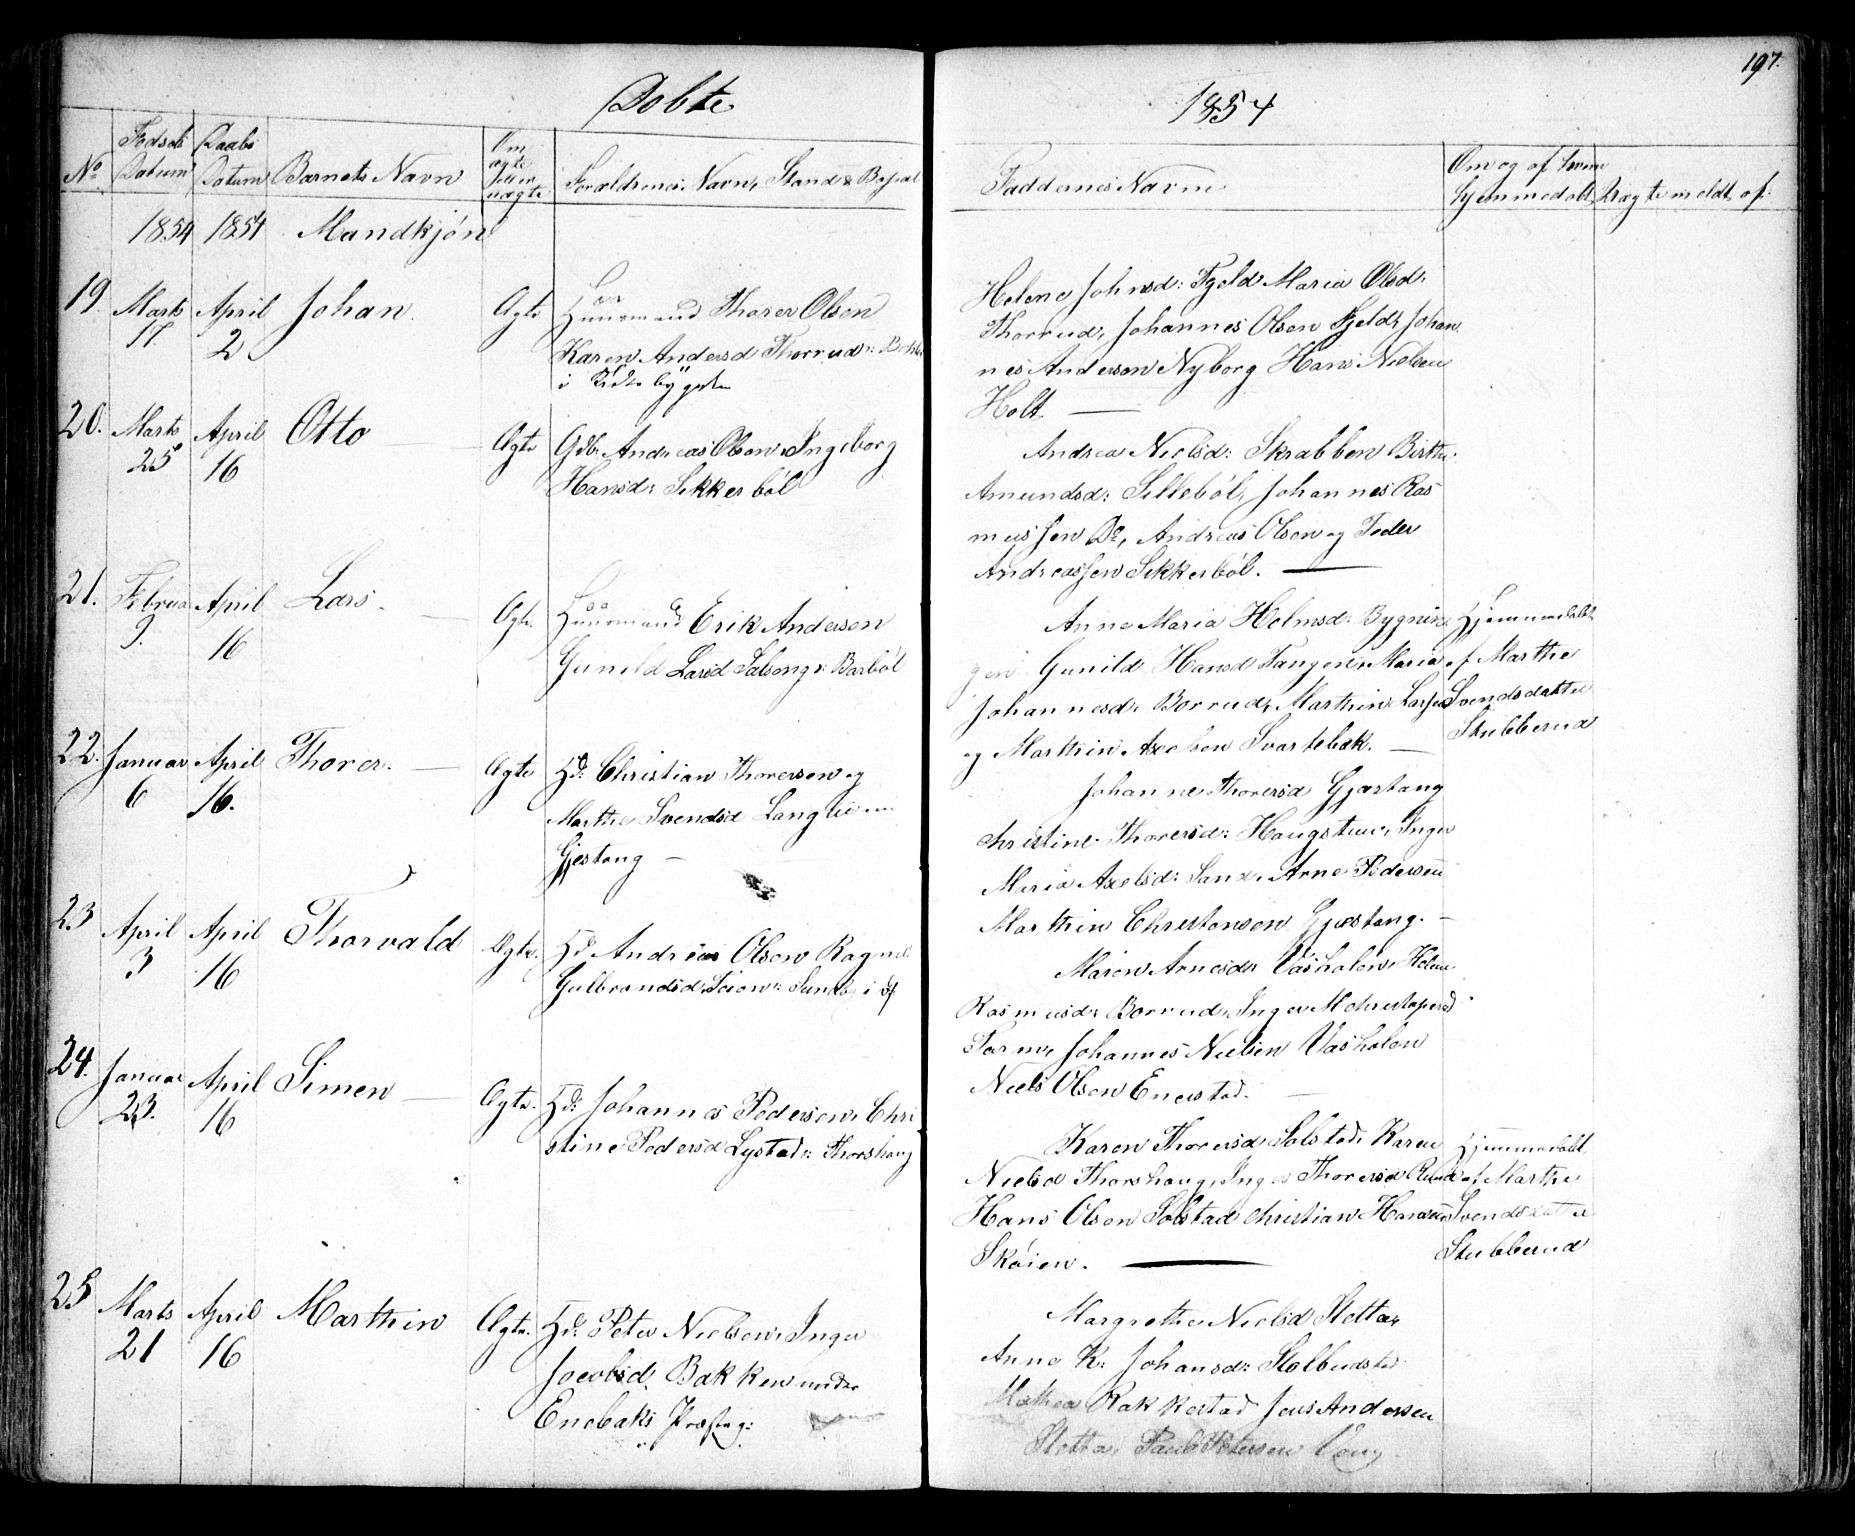 Døbte
1854
197.
No
Fødsels Datum
Daabs Datum
Barnets Navn
Om ægte eller uægte
Forældrenes Navn, Stand & Bopæl
Faddernes Navne
Om og af hvem hjemmedøbt
Dragte meldt af:
1854 1854 Mandkjøn
19. Marts 17 April 2 Johan. Ægte
Huusmand Thorer Olsen
Karen Andersd Thorrud:
i bygden
Helene Johnsd: Fjeld Maria Olsd:
Thorrud, Johannes Olsen Fjeld, Johan
nes Andersen Nyborg Hans Nielsen
Holt —
20. Marts 25 April 16 Otto Ægte
Gdb. Andreas Olsen, Ingeborg
Hansd: Sikkerbøl
Andrea Nielsd: Skrabben Birthe
Amundsd: Silleból, Johannes Ras
mussen Do, Andreas Olsen og Peder
Andreassen Sikkerból. —
21. Februar 9. April 16 Lars. Ægte.
Huusmand Erik Andersen
Gunild Larsd
Anne Maria Holmsd: Bygnin
gen Gunild Hansd Tangen, Maria
Johannesd: Borrud, Marthin Larsen
og Marthin Axelsen Svartebæk. —
Hjemmedøbt
af Marthe
Svendsdatter
Stubberud
22. Januar 6 April 16. Thorer. — Ægte
Hd: Christian Thorersen og
Marthe Svendsd Langlie
Gjestang —
Johanne Thorersd Gjæstang
Christine Thorersd: Haugstuen, Inger
Maria Axelsd: Sand, Arne Pedersen
Marthin Christensen Gjæstang. —
23 April 3 April 16 Thorvald Ægte.
Hd. Andreas Olsen Ragnild
Gulbrandsd
Maren Arnesd: Vasholen, Helene
Rasmusd: Borrud, Inger M Christophersd
Torm, Johannes Nielsen Vasholen
Niels Olsen Enerstad. —
24. Januar 23. April 16 Simen — Ægte.
Hd: Johannes Pedersen, Chri
stine Pedersd Lystad: Thorshaug
Karen Thorersd Solstad, Karen
Nielsd Thorshaug, Inger Thorersd Ruud
Hans Olsen Solstad Christian Hansen
Skøien. —
Hjemmedøbt
af Marthe
Svendsdatter
Stubberud
25 Marts 21 April 16 Marthin Ægte.
Hd: Peter Nielsen, Inger
Jacobsd. Bakken under
Enebaks Præsteg:
Margrethe Nielsd Sletta,
Anne K: Johansd: Stolbudstad
Mathea Rakkestad Jens Andersen
Sletta, Paul Petersen Vang